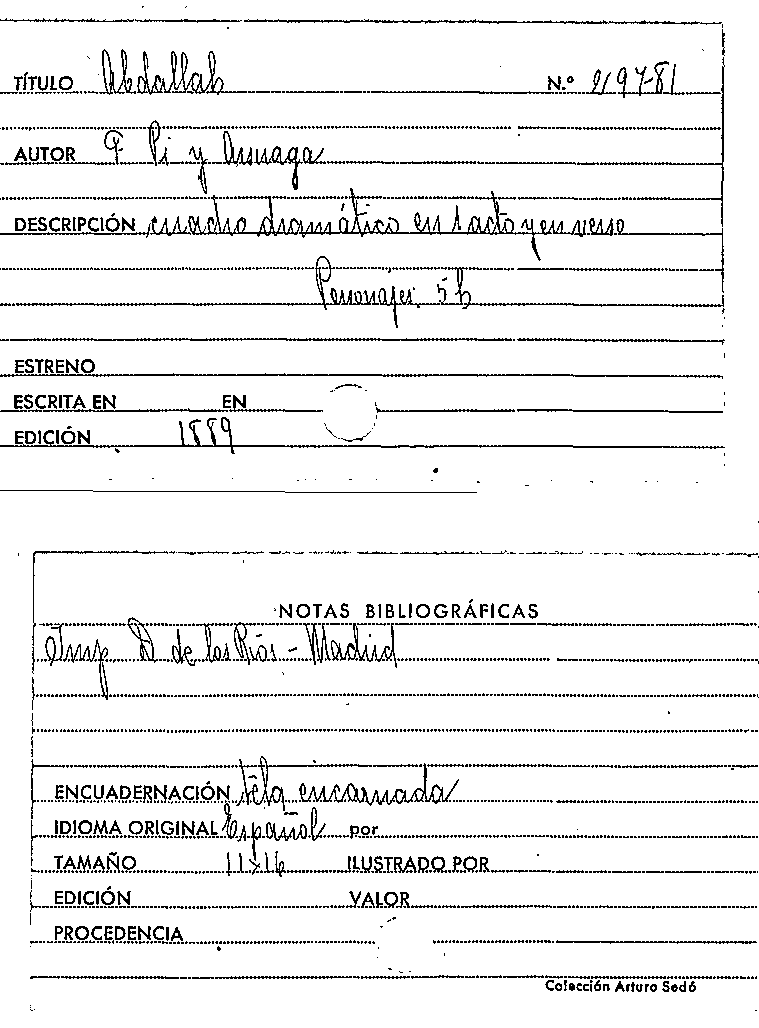 TÍTULO Abdallah N.º 2197-81
AUTOR F Pi y Arsuaga
DESCRIPCIÓN cuadro dramático en 1 acto y en verso
Personajes: 5 h
ESTRENO
ESCRITA EN EN
EDICIÓN 1889
NOTAS BIBLIOGRÁFICAS
Imp D de los Ríos - Madrid
ENCUADERNACIÓN tela encarnada
IDIOMA ORIGINAL Español por
TAMAÑO 11x16 ILUSTRADO POR
EDICIÓN VALOR
PROCEDENCIA
Colección Arturo Sedó